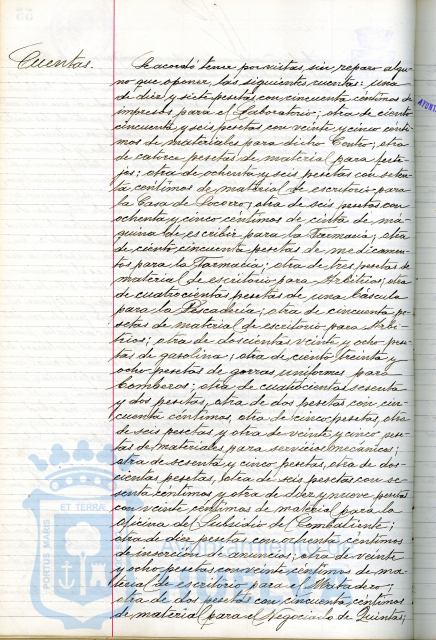 Cuentas.
Se acordó tener por vistas, sin reparo algu-
no que oponer, las siguientes cuentas: una
de diez y siete pesetas con cincuenta céntimos de
impresos para el Laboratorio; otra de ciento
cincuenta y seis pesetas con veinte y cinco cénti-
mos de materiales para dicho Centro; otra
de catorce pesetas de material para feste-
jos; otra de ochenta y seis pesetas con seten-
ta céntimos de material de escritorio para
la Casa de Socorro; otra de seis pesetas con
ochenta y cinco céntimos de cinta de má-
quina de escribir para la Farmacia; otra
de ciento cincuenta pesetas de medicamen-
tos para la Farmacia; otra de tres pesetas de
material de escritorio para Arbitrios; otra
de cuatrocientas pesetas de una báscula
para la Pescadería; otra de cincuenta pe-
setas de material de escritorio para Arbi-
trios; otra de doscientas veinte y ocho pese-
tas de gasolina; otra de ciento treinta y
ocho pesetas de gorras uniformes para
Bomberos; otra de cuatrocientas sesenta
y dos pesetas, otra de dos pesetas con cin-
cuenta céntimos, otra de cinco pesetas, otra
de seis pesetas y otra de veinte y cinco pese-
tas de materiales para servicios mecánicos;
otra de sesenta y cinco pesetas, otra de dos-
cientas pesetas, otra de seis pesetas con se-
senta céntimos y otra de diez y nueve pesetas
con veinte céntimos de material para la
oficina de Subsidio de Combatiente;
otra de diez pesetas con ochenta céntimos
de inserción de anuncios; otra de veinte
y ocho pesetas con veinte céntimos de ma-
terial de escritorio para el Matadero;
otra de dos pesetas con cincuenta céntimos
de material para el Negociado de Quintas;
AYUNTA
PORTUS MARIS
ET TERRAE